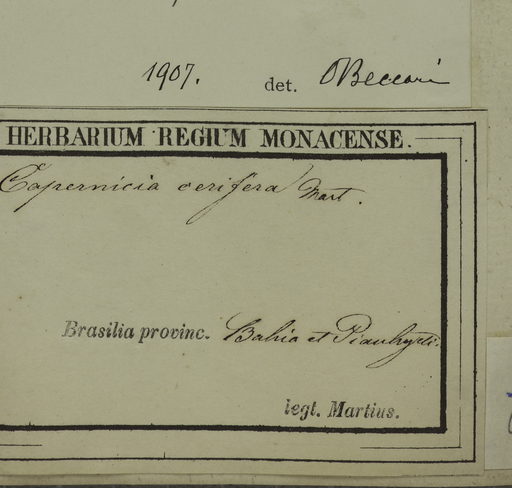 1907. det. OBeccari
HERBARIUM REGIUM MONACENSE.
Copernicia cerifera Mart.
Brasilia provinc. Bahia et Piauhyeti.
legt. Martius.